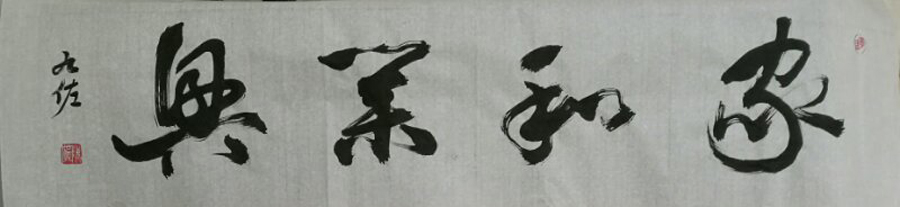 家和業興
九佐